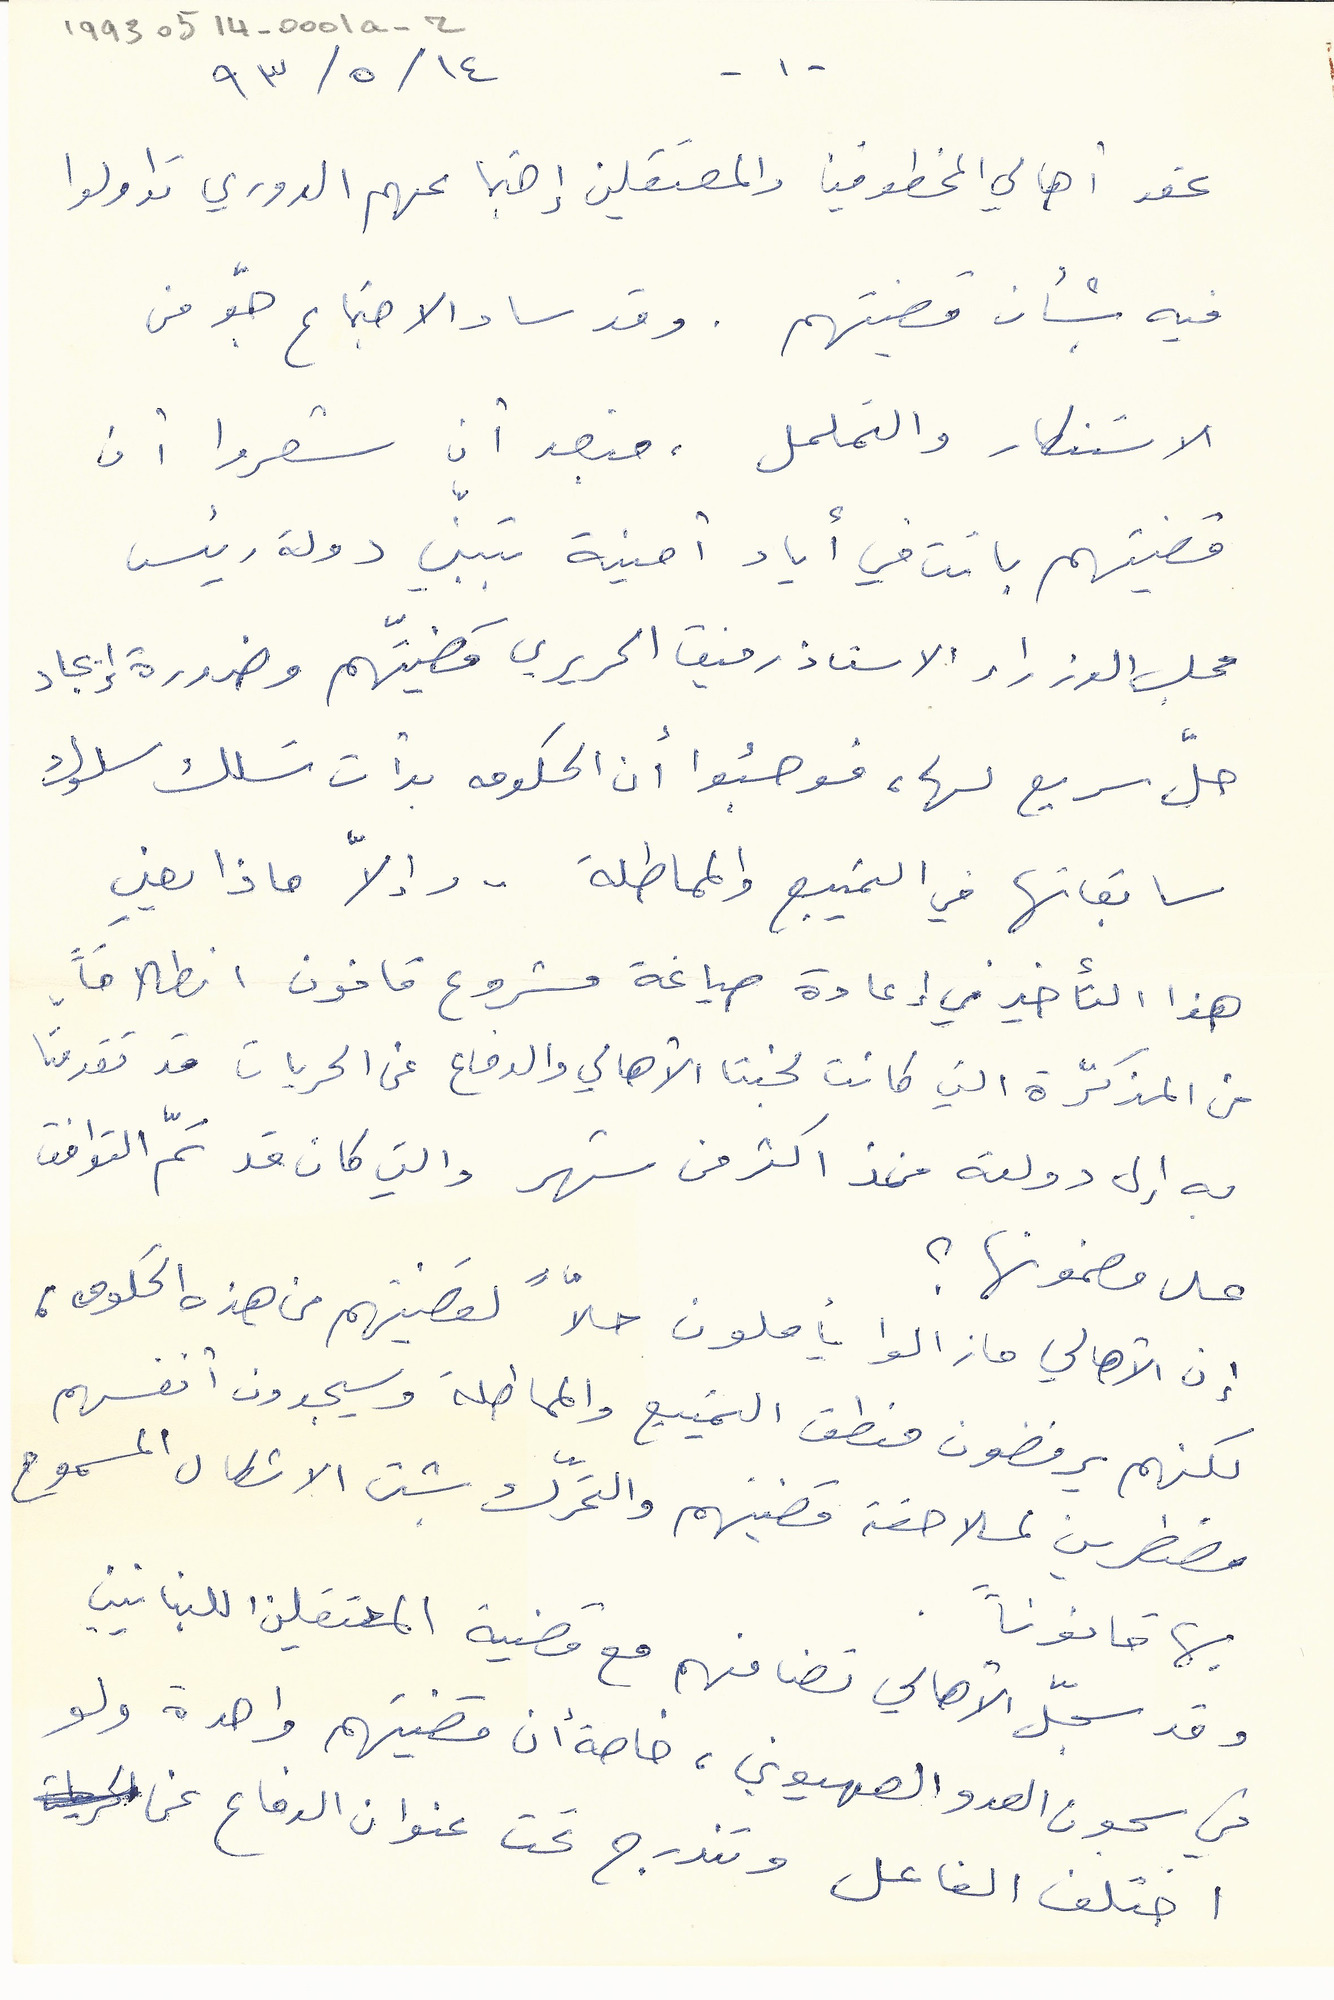 19930514-0001a-2
-١- ٩٣/٥/١٤
عقد أهالي المخطوفين والمعتقلين إجتماعهم الدوري تداولوا
فيه بشأن قضيتهم . وقد ساد الاجتماع جوّ من
الاستنكار والتململ ، فبعد أن شعروا أن
قضيتهم باتت في أياد أمينة بتبنّي دولة رئيس
مجلس الوزراء الاستاذ رفيق الحريري قضيتّهم وضرورة إيجاد
حلّ سريع لها ، فوجئوا أن الحكومه بدأت تسلك سلوك
سابقاتها في التمييع والمماطلة .. وإلاّ ماذا يعني
هذا التأخير في إعادة صياغة مشروع قانون انطلاقاً
من المذكّرة التي كانت لجنتا الأهالي والدفاع عن الحريات قد تقدمتا
به إلى دولته منذ اكثر من شهر والتي كان قد تمّ التوافق
على مضمونها ؟
إن الأهالي مازالوا يأملون حلاًّ لقضيتهم من هذه الحكومه ،
لكنهم يرفضون منطق التمييع والمماطلة وسيجدون أنفسهم
مضطرين لملاحقة قضيتهم والتحرّك بشتى الاشكال المسموح
بها قانوناً .
وقد سجّل الأهالي تضامنهم مع قضية المعتقلين اللبنانيين
في سجون العدو الصهيوني ، خاصة أن قضيتهم واحدة ولو
اختلف الفاعل وتندرج تحت عنوان الدفاع عن الحريات